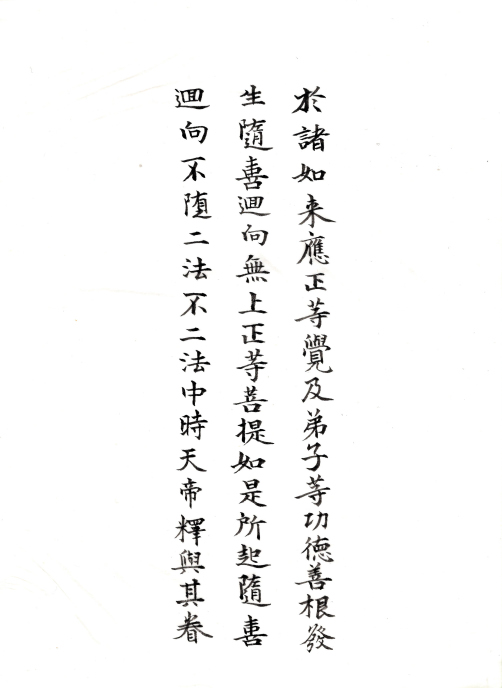 於諸如来應正等覺及弟子等功德善根發
生隨喜迴向無上正等菩提如是所起隨喜
迴向不墮二法不二法中時天帝釋與其眷